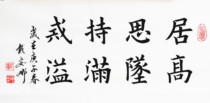 居高
思墜
持滿
戒溢
歲在庚子春